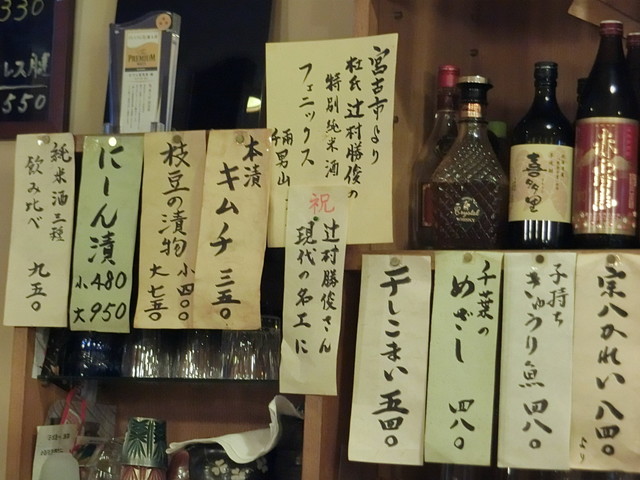 330
レス腿
550
PREMIUM
宮古市より
杜氏辻村勝俊の
特別純米酒
フェニックス
千両男山
祝
辻村勝俊さん
「現代の名工」に
本漬
キムチ 三五〇
枝豆の漬物
小 四〇〇
大 七五〇
にしん漬
小 480
大 950
純米酒三種
飲み比べ 九五〇
Crystal
喜多里
赤霧島
宗八かれい 八四〇
より
子持ち
きゅうり魚 四八〇
千葉の
めざし 四八〇
干しこまい 五四〇